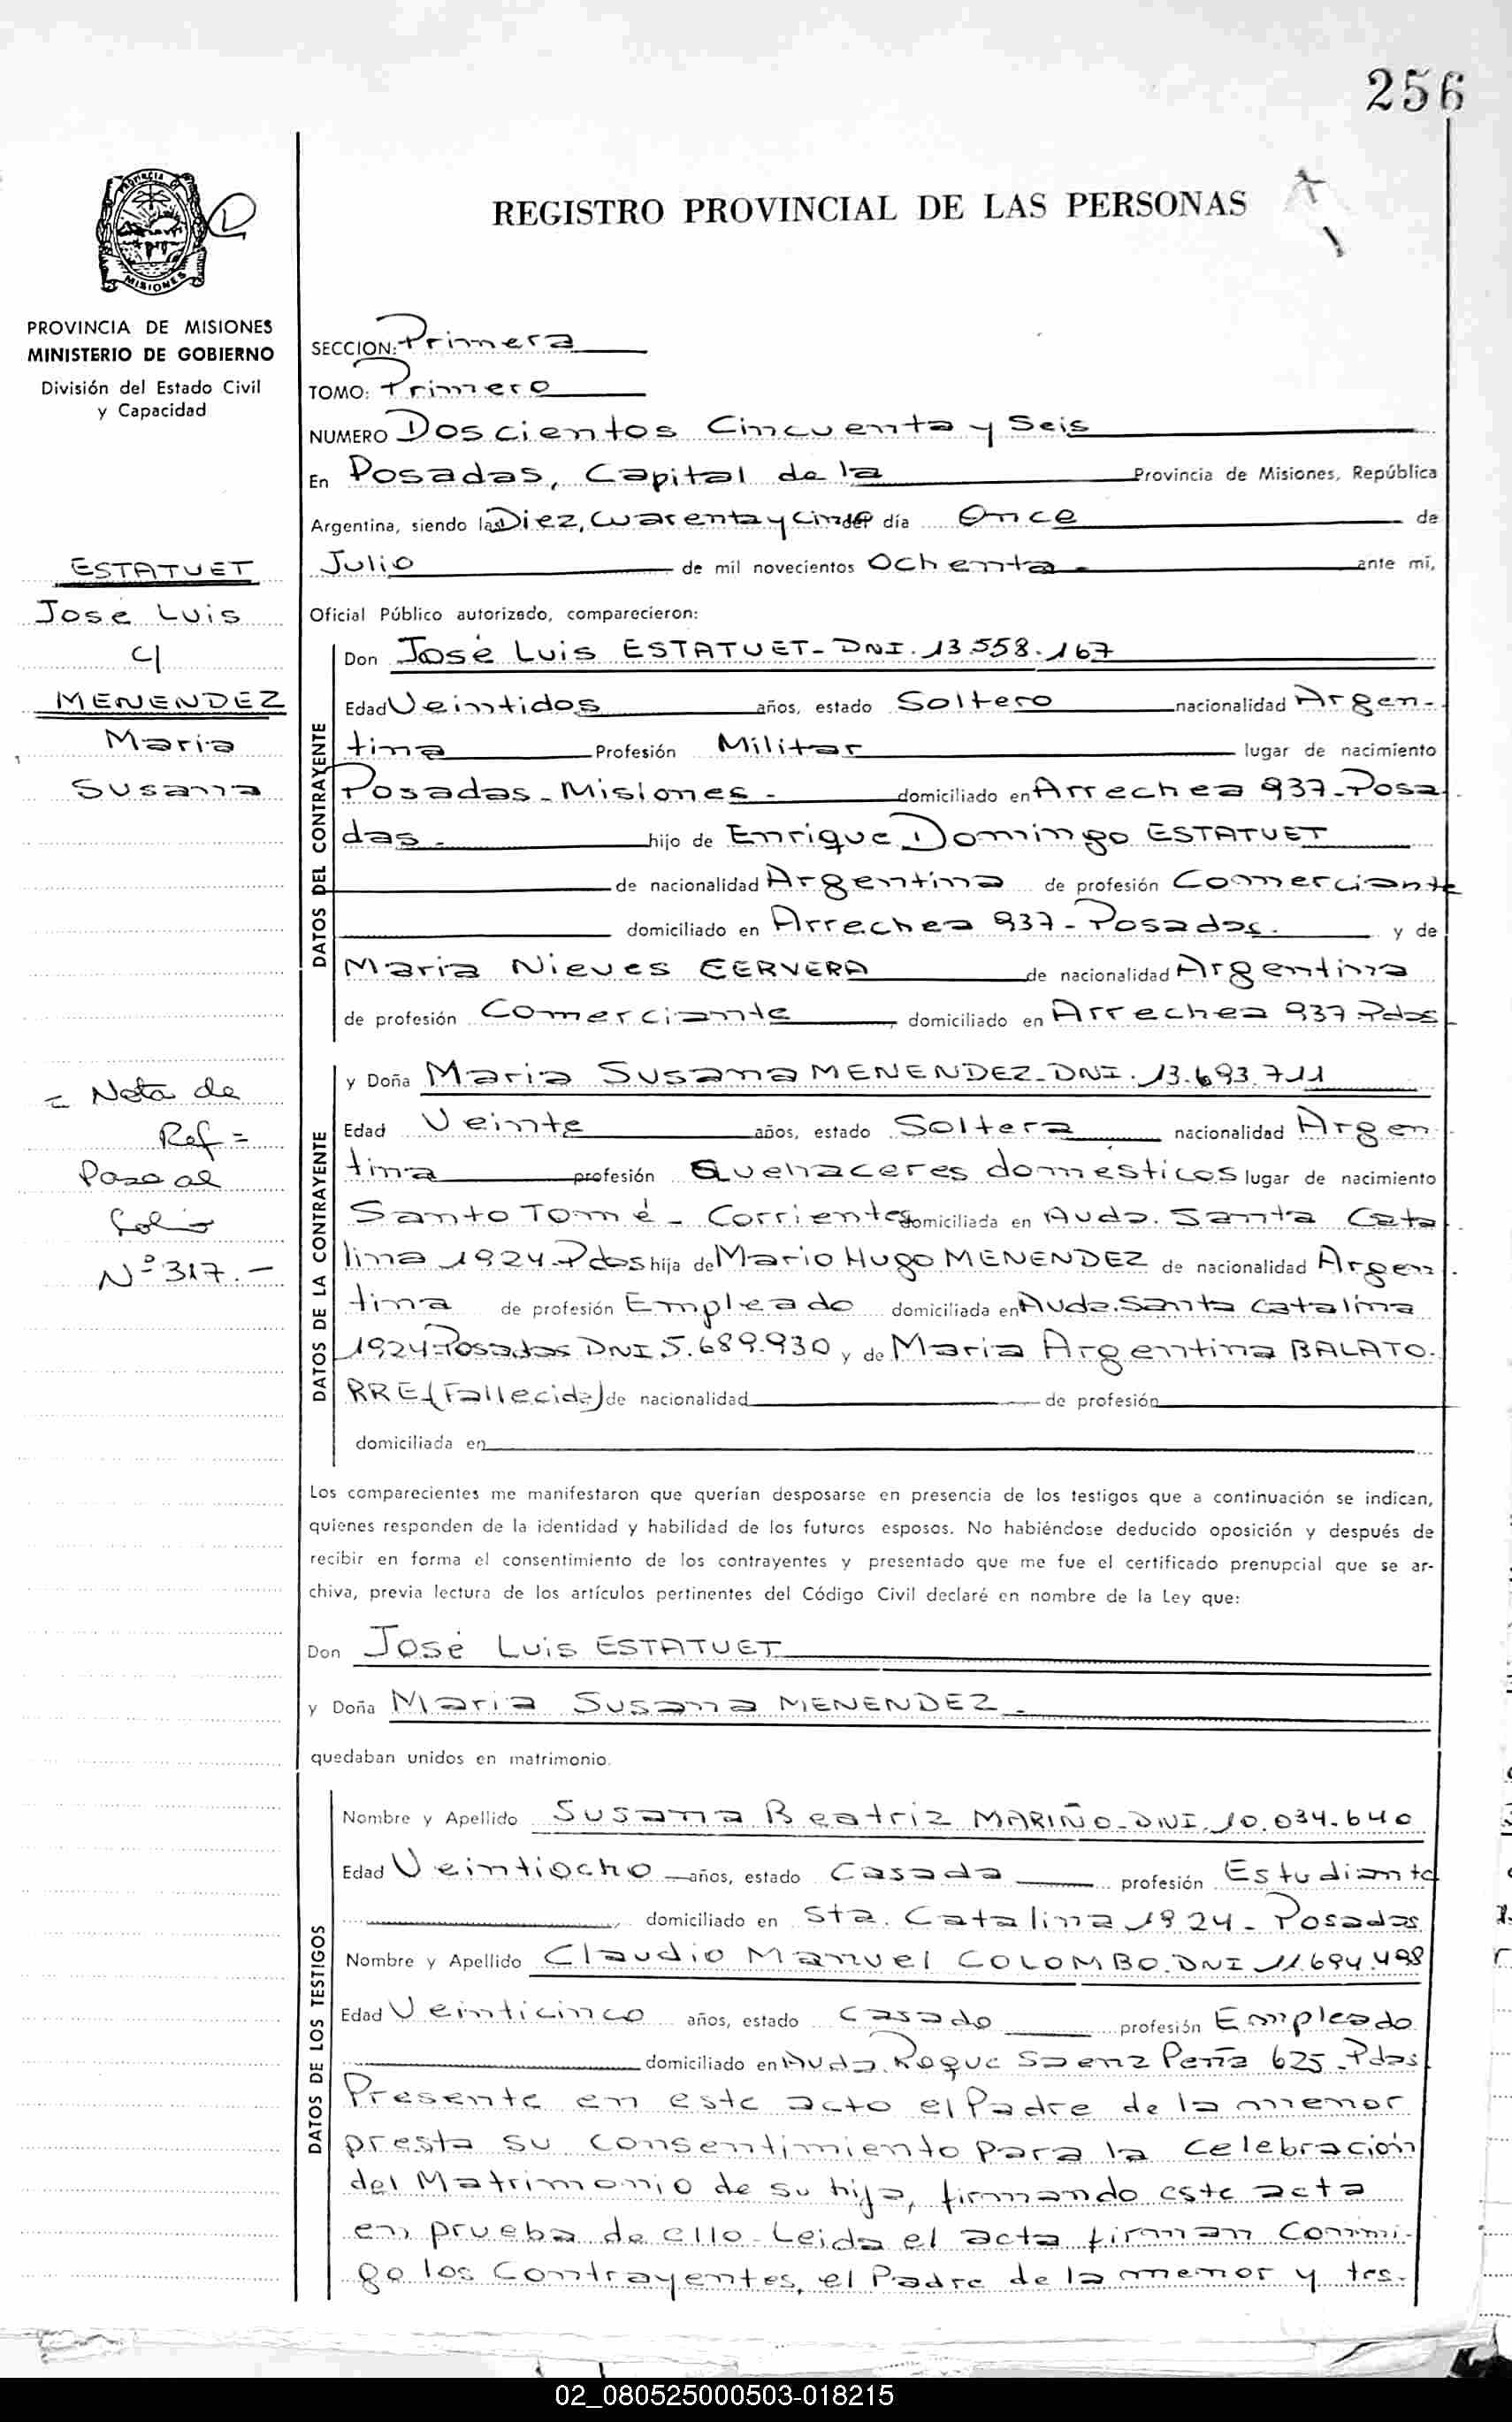 256
REGISTRO PROVINCIAL DE LAS PERSONAS
PROVINCIA DE
MISIONES
PROVINCIA DE MISIONES
MINISTERIO DE GOBIERNO
División del Estado Civil
y Capacidad
ESTATUET
José Luis
c/
MENENDEZ
Maria
Susana
= Nota de
Ref =
Pasa al
folio
Nº 317.-
SECCION: Primera
TOMO: Primero
NUMERO Doscientos Cincuenta y Seis
En Posadas, Capital de la Provincia de Misiones, República
Argentina, siendo las Diez, Cuarenta y Cinco del día Once de
Julio de mil novecientos Ochenta.- ante mí,
Oficial Público autorizado, comparecieron:
DATOS DEL CONTRAYENTE
Don José Luis ESTATUET- DNI. 13.558.167
Edad Veintidos años, estado Soltero nacionalidad Argen-
tina Profesión Militar lugar de nacimiento
Posadas - Misiones - domiciliado en Arrechea 937-Posa
das - hijo de Enrique Domingo ESTATUET
de nacionalidad Argentina de profesión Comerciante
domiciliado en Arrechea 937 - Posadas. y de
Maria Nieves CERVERA de nacionalidad Argentina
de profesión Comerciante domiciliado en Arrechea 937 Pdas
DATOS DE LA CONTRAYENTE
y Doña Maria Susana MENENDEZ-DNI. 13.693.711
Edad Veinte años, estado Soltera nacionalidad Argen
tina profesión Quehaceres domésticos lugar de nacimiento
Santo Tomé - Corrientes domiciliada en Avda. Santa Cata
lina 1924-Pdas hija de Mario Hugo MENENDEZ de nacionalidad Argen-
tina de profesión Empleado domiciliada en Avda. Santa Catalina
1924-Posadas DNI 5.689.930 y de Maria Argentina BALATO-
RRE (Fallecida) de nacionalidad de profesión
domiciliada en
Los comparecientes me manifestaron que querían desposarse en presencia de los testigos que a continuación se indican,
quienes responden de la identidad y habilidad de los futuros esposos. No habiéndose deducido oposición y después de
recibir en forma el consentimiento de los contrayentes y presentado que me fue el certificado prenupcial que se ar-
chiva, previa lectura de los artículos pertinentes del Código Civil declaré en nombre de la Ley que:
Don José Luis ESTATUET
y Doña Maria Susana MENENDEZ -
quedaban unidos en matrimonio.
DATOS DE LOS TESTIGOS
Nombre y Apellido Susana Beatriz MARIÑO-DNI. 10.034.640
Edad Veintiocho años, estado Casada profesión Estudiante
domiciliado en Sta. Catalina 1924 - Posadas
Nombre y Apellido Claudio Manuel COLOMBO. DNI 11.694.498
Edad Veinticinco años, estado Casado profesión Empleado
domiciliado en Avda. Roque Saenz Peña 625-Pdas
Presente en este acto el Padre de la menor
presta su consentimiento para la Celebración
del Matrimonio de su hija, firmando este acta
en prueba de ello-Leida el acta firman Conmi-
go los Contrayentes, el Padre de la menor y tes.
02_080525000503-018215